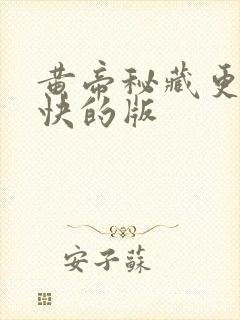 黄帝秘藏更
快的版
安子苏